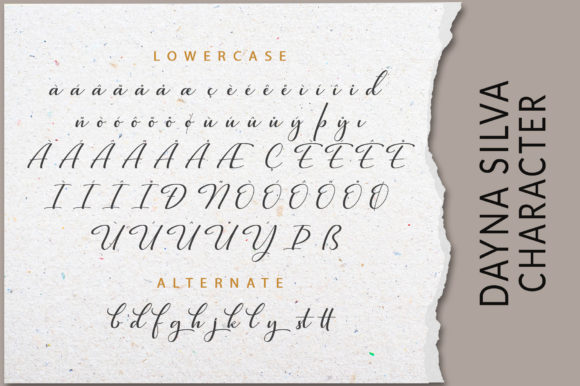 LOWERCASE
à á â ã ä å æ ç è é ê ë ì í î ï ð
ñ ò ó ô õ ö ø ù ú û ü ý þ ÿ ı
À Á Â Ã Ä Å Æ Ç È É Ê Ë
Ì Í Î Ï Ð Ñ Ò Ó Ô Õ Ö Ø
Ù Ú Û Ü Ý Þ ß
ALTERNATE
b d f g h j k l y st tt
DAYNA SILVA
CHARACTER